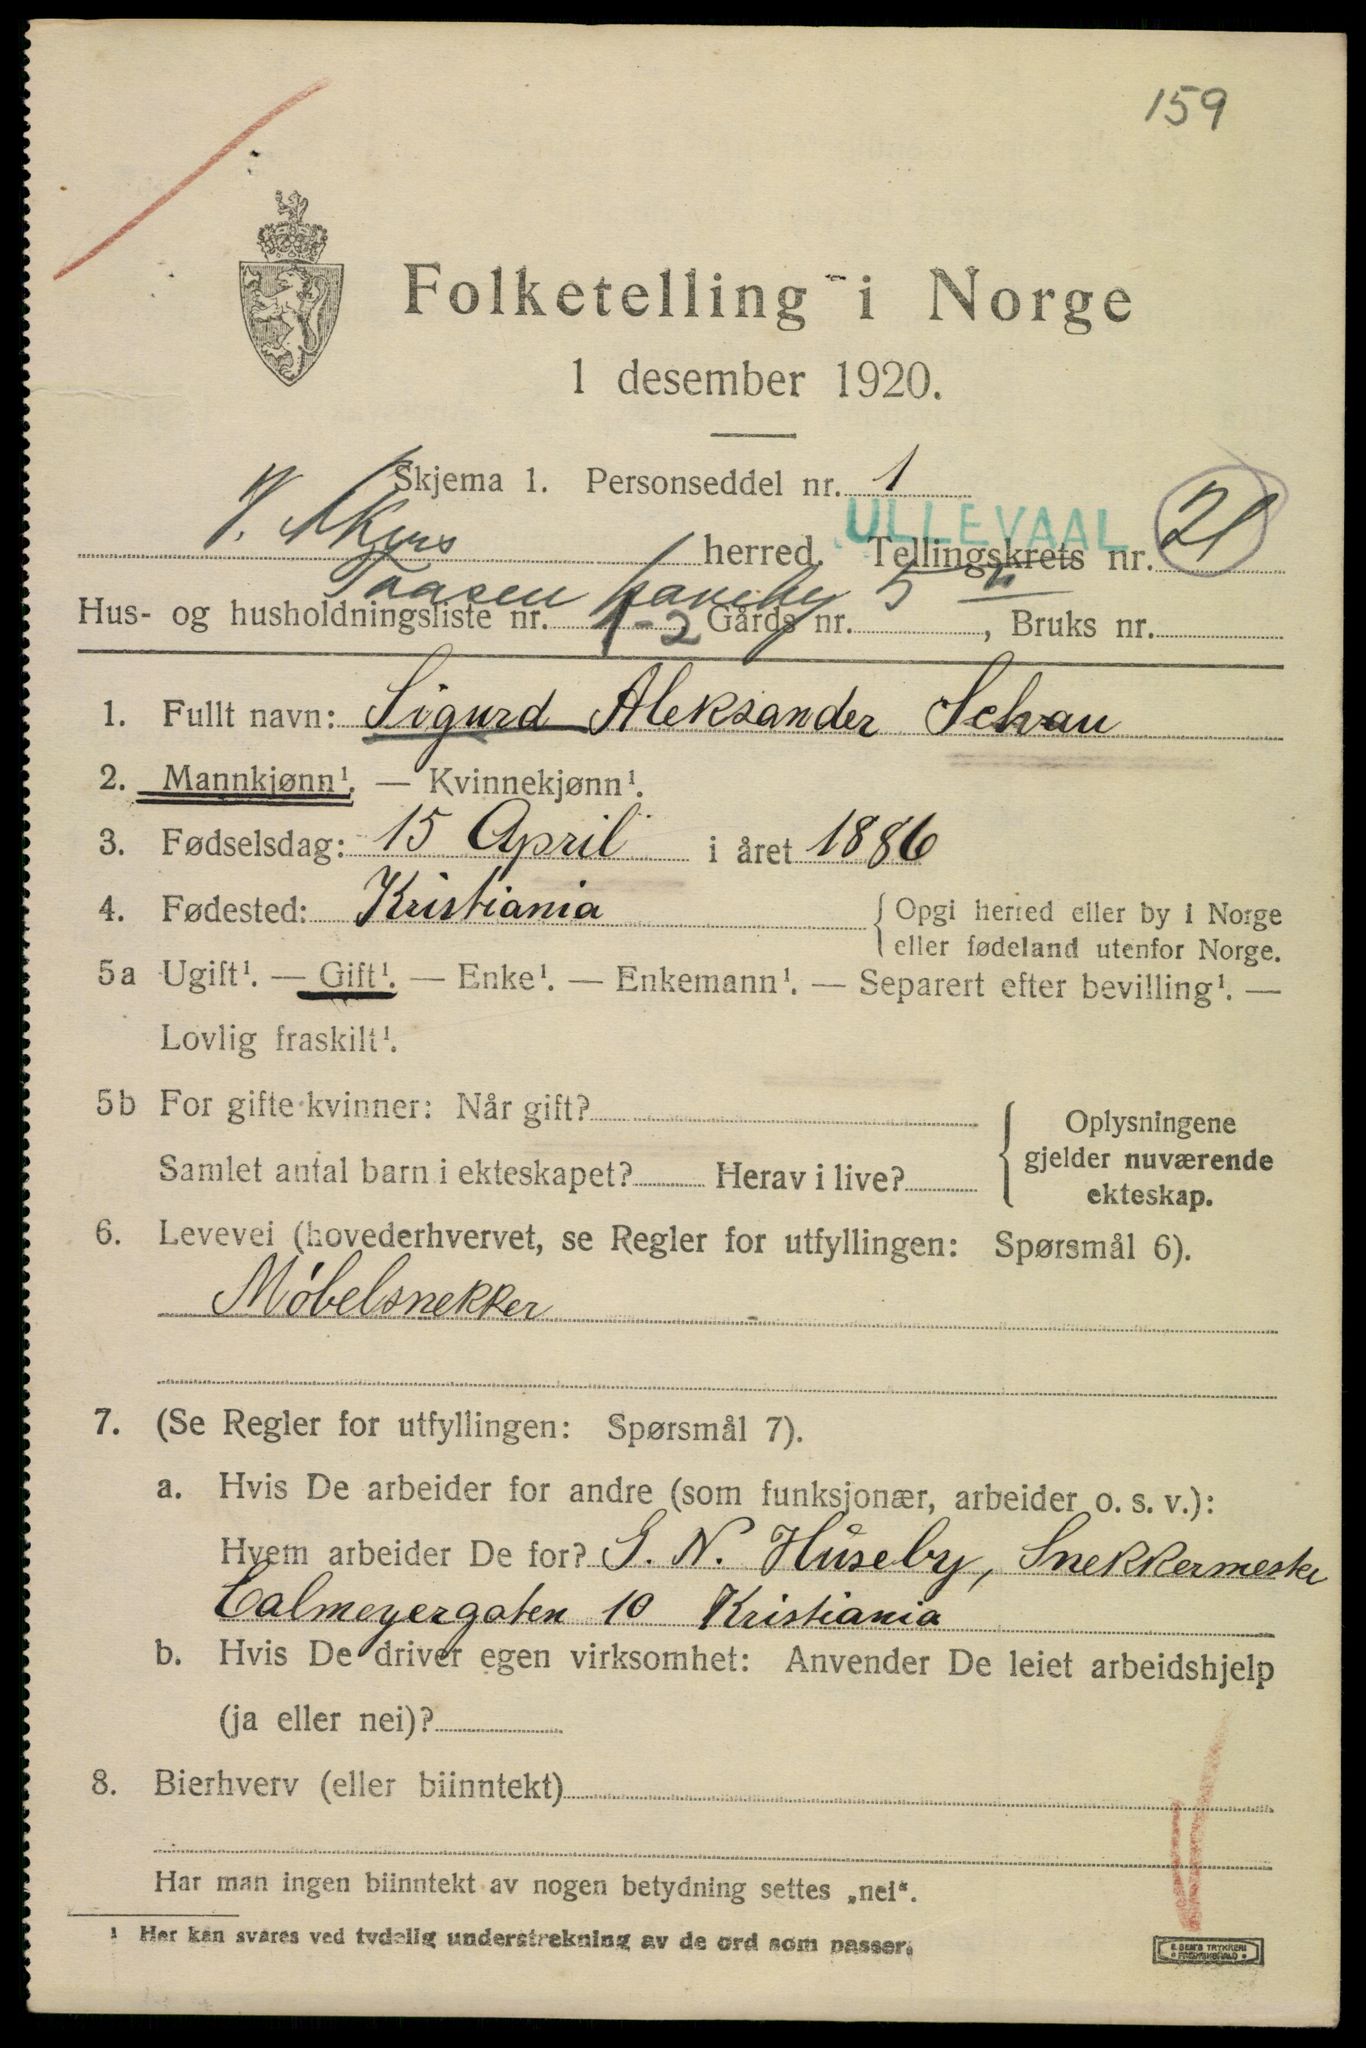 159
Folketelling i Norge
1 desember 1920.
Skjema 1. Personseddel nr. 1
V. Akers herred. ULLEVAAL Tellingskrets nr. 21
Taasen haveby 5
Hus- og husholdningsliste nr. 1-2 Gårds nr. , Bruks nr.
1. Fullt navn: Sigurd Aleksander Schau
2. Mannkjønn¹. — Kvinnekjønn¹.
3. Fødselsdag: 15 April i året 1886
4. Fødested: Kristiania { Opgi herred eller by i Norge
eller fødeland utenfor Norge.
5a Ugift¹. — Gift¹. — Enke¹. — Enkemann¹. — Separert efter bevilling¹. —
Lovlig fraskilt¹.
5b For gifte kvinner: Når gift? { Oplysningene
gjelder nuværende
ekteskap.
Samlet antal barn i ekteskapet? Herav i live?
6. Levevei (hovederhvervet, se Regler for utfyllingen: Spørsmål 6).
Møbelsnekker
7. (Se Regler for utfyllingen: Spørsmål 7).
a. Hvis De arbeider for andre (som funksjonær, arbeider o. s. v.):
Hvem arbeider De for? G. N. Huseby, Snekkermester
Calmeyergaten 10 Kristiania
b. Hvis De driver egen virksomhet: Anvender De leiet arbeidshjelp
(ja eller nei)?
8. Bierhverv (eller biinntekt)
Har man ingen biinntekt av nogen betydning settes „nei“.
¹ Her kan svares ved tydelig understrekning av de ord som passer.